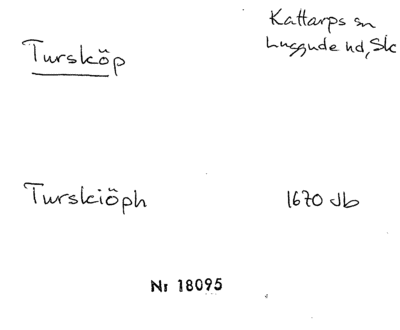 Kattarps sn
Luggude hd, Sk
Tursköp
Turskiöph 1670 Jb
Nr 18095